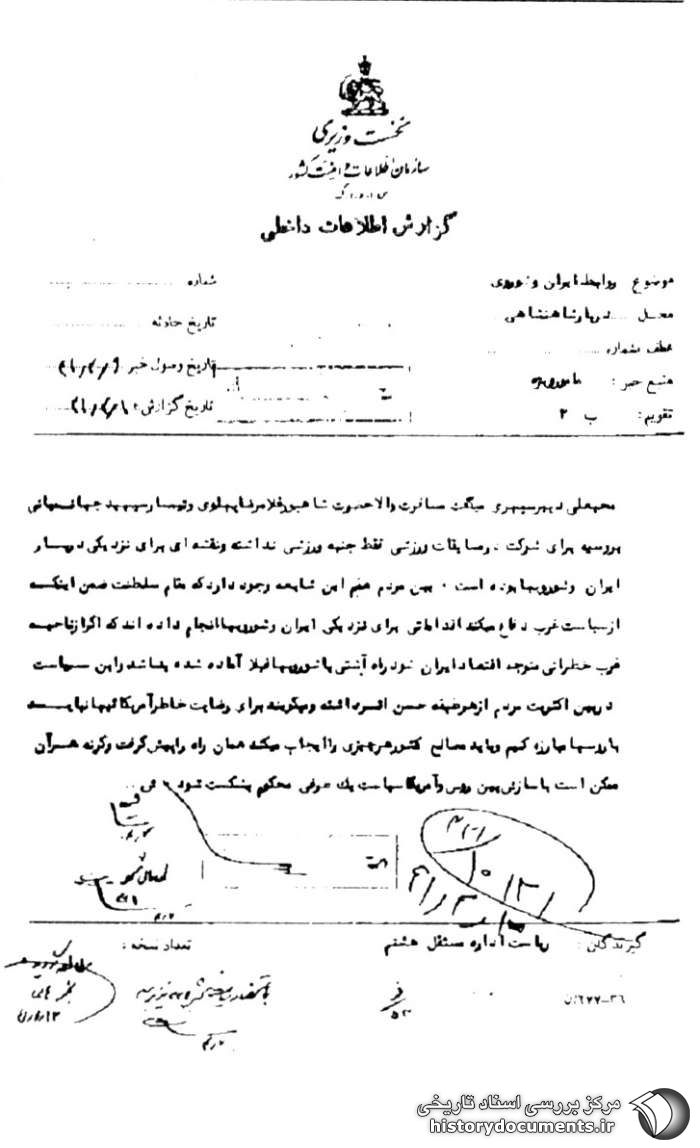 نخست وزیری
سازمان اطلاعات و امنیت کشور
س . ا . و . ا . ک
گزارش اطلاعات داخلی
موضوع روابط ایران و شوروی
شماره
محل دربار شاهنشاهی
تاریخ حادثه
عطف بشماره
تاریخ وصول خبر
منبع خبر : مامور ویژه
تاریخ گزارش :
تقویم : ب ۲
محمدعلی دبیرسپهری میگفت مسافرت والاحضرت شاهپور غلامرضا پهلوی و تیمسار سپهبد جهانبانی
بروسیه برای شرکت در مسابقات ورزشی فقط جنبه ورزشی نداشته و نقشه ای برای نزدیکی دربار
ایران و شورویها بوده است . بین مردم هم این شایعه وجود دارد که مقام سلطنت ضمن اینکه
از سیاست غرب دفاع میکند اقداماتی برای نزدیکی ایران و شورویها انجام داده اند که اگر از ناحیه
غرب خطراتی متوجه اقتصاد ایران شود راه آشتی با شورویها قبلا آماده شده باشد و این سیاست
در بین اکثریت مردم از هر طبقه حسن اثر داشته و میگویند برای رضایت خاطر آمریکائیها نباید
با روسها مبارزه کنیم و باید مصالح کشور هر چیزی را ایجاب میکند همان راه را پیش گرفت وگرنه هر آن
ممکن است با سازش بین روس و آمریکا سیاست یک طرفی محکوم بشکست شود .
۱۰۱۳۱
گیرندگان : ریاست اداره مستقل هشتم
تعداد نسخه :
۳۶-۶۷۷/ن
مرکز بررسی اسناد تاریخی
historydocuments.ir